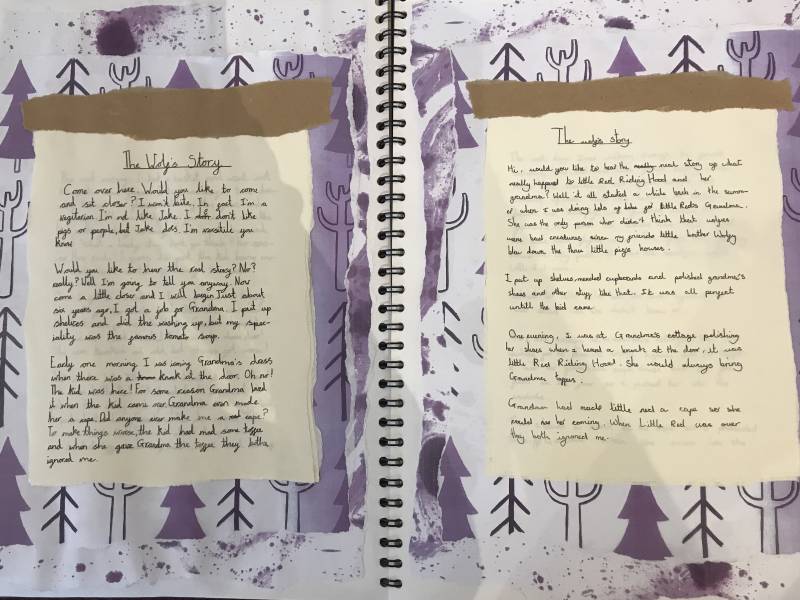 The Wolf's Story
Come over here. Would you like to come
and sit closer? I won't bite. In fact I'm a
vegitarian I'm not like Jake. I don't like
pigs or people, but Jake dos. I'm
know
Would you like to hear the real story? No?
really? Well I'm going to tell you anyway. Now
come a little closer and I will begin. Just about
six years ago, I got a job for Grandma. I put up
shelves and did the washing up, but my spec-
iality was the famous tomato soup.
Early one morning I was ironing Grandma's dress
when there was a knok at the door. Oh no!
The kid was here! For some reason Grandma loved
it when the kid came over. Grandma even made
her a cape. Did anyone ever make me a cape?
To make things worse, the kid had mad some toffee
and when she gave Grandma the toffee they boths
ignored me.
The wolf's story
Hi, would you like to hear the really real story of what
really happend to little Red Riding Hood and her
grandma? Well it all started a while back in the summ-
er when I was doing lots of jobs for little Red's Grandma.
She was the only person who didn't think that wolves
were bad creatures since my friends little brother Wolfy
blew down the thru little pig's houses.
I put up shelves, mended cupboards and polished grandma's
shoes and other stuff like that. It was all perfect
untill the kid came.
One evening, I was at Grandma's cottage polishing
her shoes when I heard a knock at the door, it was
little Red Riding Hood. She would always bring
Grandma toffees.
Grandma had made little red a cape so she
her coming. When Little Red was over
they both ignored me.